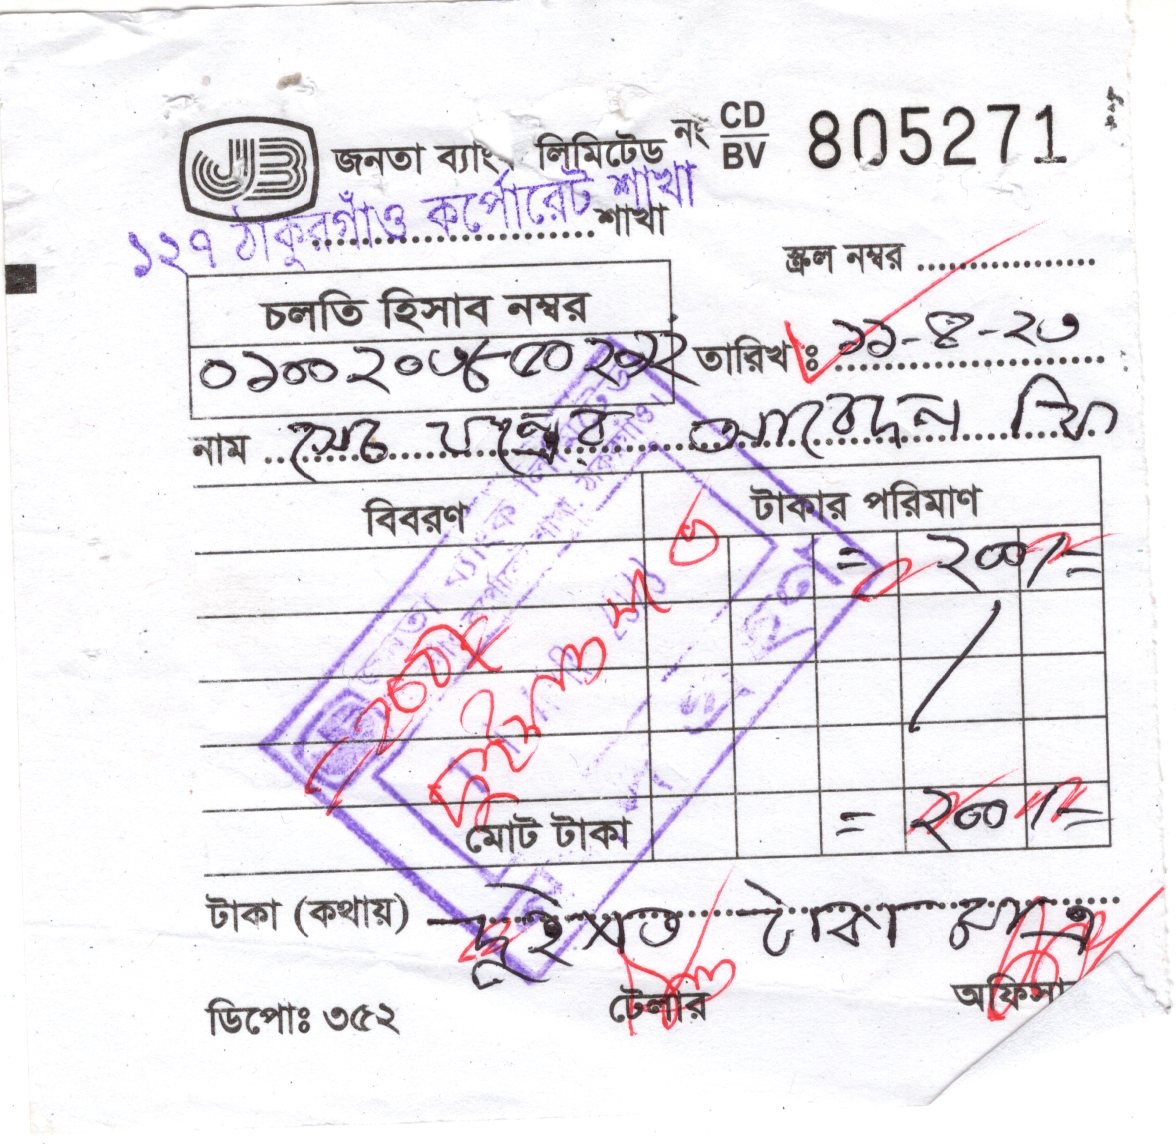 JB জনতা ব্যাংক লিমিটেড নং CD/BV 805271
১২৭ ঠাকুরগাঁও কর্পোরেট শাখা
শাখা
স্ক্রল নম্বর
চলতি হিসাব নম্বর
তারিখ ঃ ১১-৪-২৩
নাম সেচ যন্ত্রের আবেদন ফি
বিবরণ টাকার পরিমাণ
= ২০০/=
দুইশত
মোট টাকা = ২০০/=
টাকা (কথায়) দুইশত টাকা মাত্র
টেলার অফিসা
ডিপোঃ ৩৫২